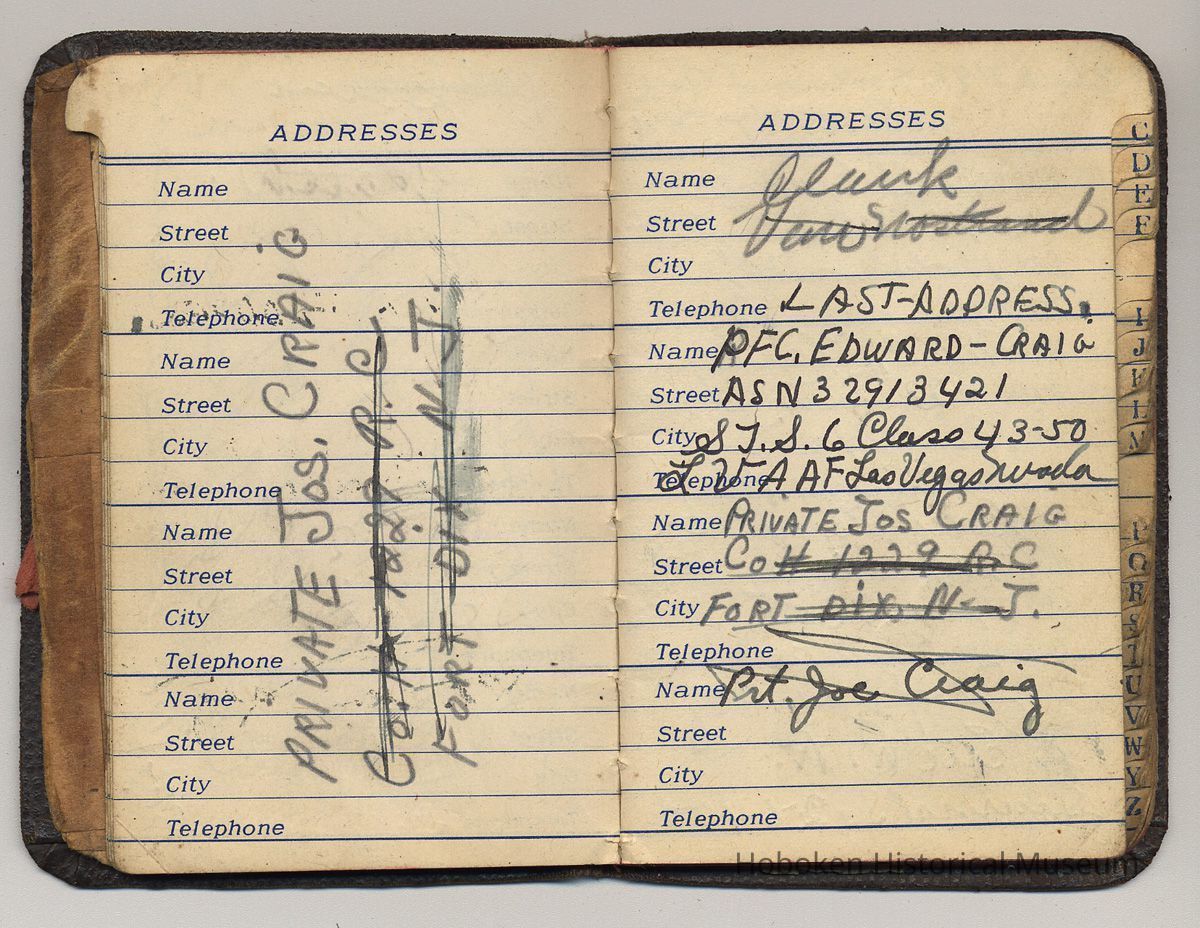 ADDRESSES
Name
Street
City
Telephone
Name
Street
City
Telephone
Name
Street
City
Telephone
Name
Street
City
Telephone
PRIVATE JOS. CRAIG
Co. H 1229 R.C
FORT DIX N.J.
ADDRESSES
Name
Street
City
Telephone LAST-ADDRESS.
Name PFC. EDWARD-CRAIG
Street ASN 32913421
City S.T.S. 6 Class 43-50
Telephone L V A A F Las Vegas Nevada
Name PRIVATE JOS CRAIG
Street Co H 1229 R C
City FORT DIX, N-J.
Telephone
Name Pvt. Joe Craig
Street
City
Telephone
C
D
E
F
I
J
K
L
P
Q
R
S
T
U
V
W
Y
Z
Hoboken Historical Museum